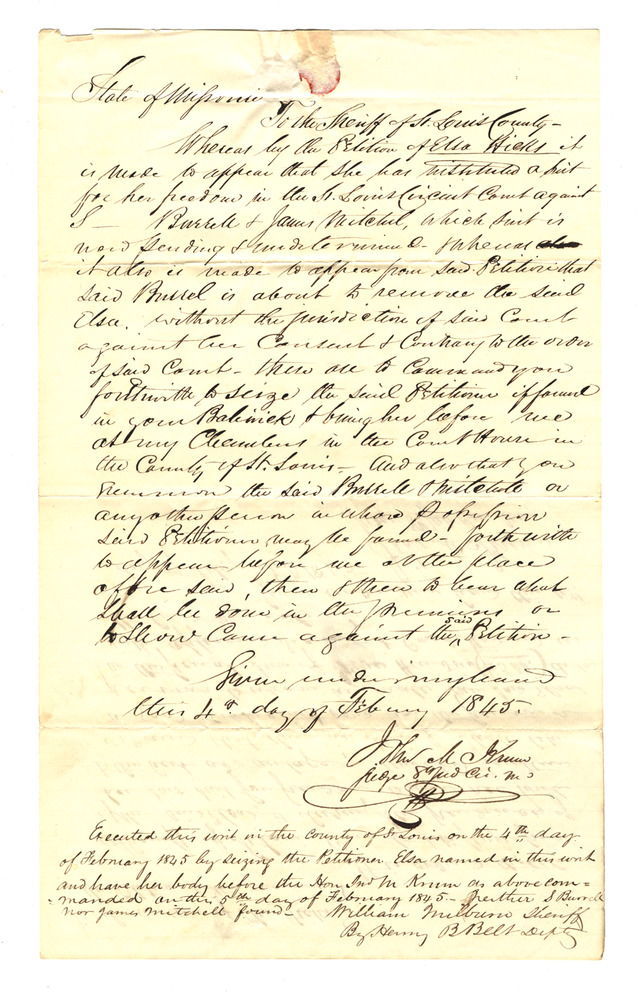 State of Missouri
To the Sheriff of St. Louis County -
Whereas by the Petition of Elsa Hicks it
is made to appear that she has instituted a suit
for her freedom in the St. Louis Circuit Court against
S - Burrell & James Mitchel, which suit is
now pending & undetermined - & whereas
it also is made to appear from said Petition that
said Burrel is about to remove the said
Elsa. without the jurisdiction of said Court
against her Consent & Contrary to the order
of said Court - these are to Command you
forthwith to seize the said Petitioner if found
in your Baliwick & bring her before me
at my Chambers in the Court House in
the County of St. Louis - And also that you
summon the said Burrell & Mitchell or
any other person in whose Possession
said Petitioner may be found - forthwith
to appear before me at the place
afore said, then & there to hear what
shall be done in the premises or
to show Cause against the said Petition -
Given under my hand
this 4th day of February 1845.
Jno M Krum
Judge 8th Jud Cir. Mo
Executed this writ in the County of St Louis on the 4th day
of February 1845 by seizing the Petitioner Elsa named in this writ
and have her body before the Hon Jno M Krum as above com-
manded on this 5th day of February 1845 - Neither S Burrell
nor James Mitchell found -
William Milburn Sheriff
By Henry B Belt Depty